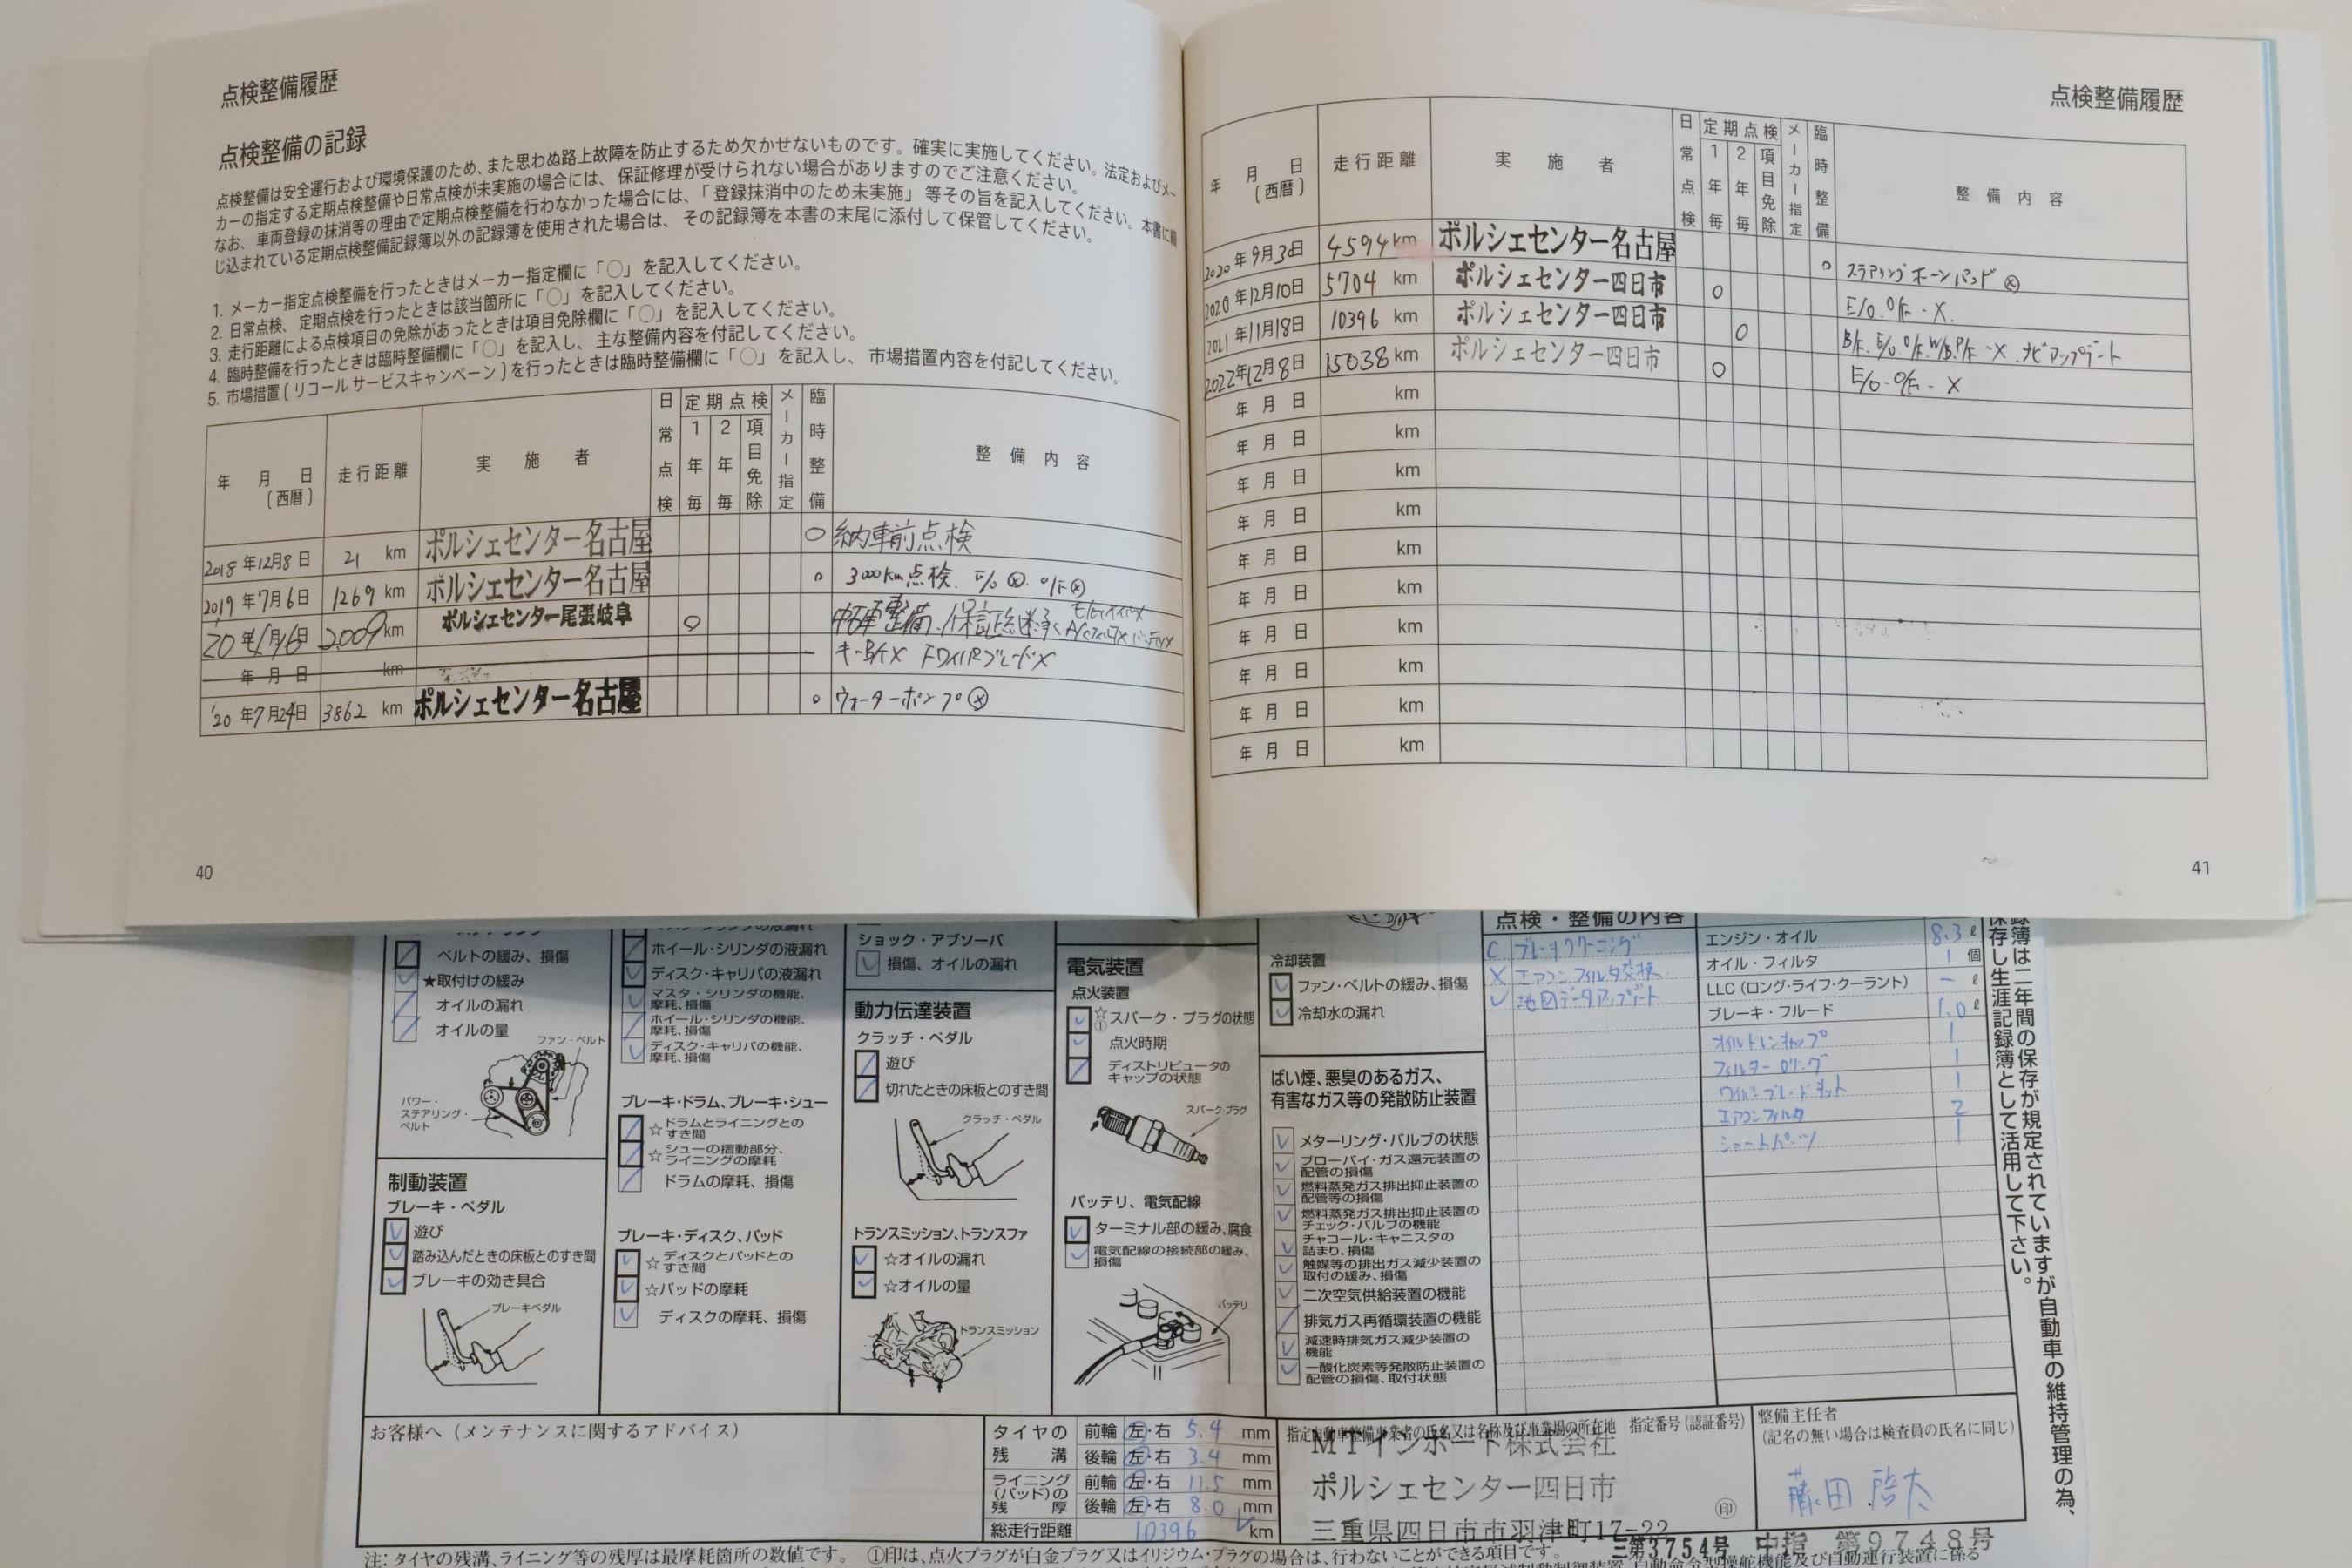 点検整備履歴
点検整備の記録
点検整備は安全運行および環境保護のため、また思わぬ路上故障を防止するため欠かせないものです。確実に実施してください。法定およびメー
カーの指定する定期点検整備や日常点検が未実施の場合には、保証修理が受けられない場合がありますのでご注意ください。
なお、車両登録の抹消等の理由で定期点検整備を行わなかった場合には、「登録抹消中のため未実施」等その旨を記入してください。本書に綴
じ込まれている定期点検整備記録簿以外の記録簿を使用された場合は、その記録簿を本書の末尾に添付して保管してください。
1. メーカー指定点検整備を行ったときはメーカー指定欄に「○」を記入してください。
2. 日常点検、定期点検を行ったときは該当箇所に「○」を記入してください。
3. 走行距離による点検項目の免除があったときは項目免除欄に「○」を記入してください。
4. 臨時整備を行ったときは臨時整備欄に「○」を記入し、主な整備内容を付記してください。
5. 市場措置(リコール サービスキャンペーン)を行ったときは臨時整備欄に「○」を記入し、市場措置内容を付記してください。
年 月 日 (西暦) 走行距離 実施者 日常点検 定期点検 1年毎 2年毎 項目免除 メーカー指定 臨時整備 整備内容
2018年12月8日 21 km ポルシェセンター名古屋 ○ 納車前点検
2019年7月6日 1269 km ポルシェセンター名古屋 ○ 3000km点検. E/O ⓧ. O/F ⓧ
'20年 月6日 2009km ポルシェセンター尾張岐阜 ○ 中古車整備、保証継承
年 月 日 km キーB/T X FワイパーブレードX
'20年7月24日 3862 km ポルシェセンター名古屋 ○ ウォーターポンプ ⓧ
40
点検整備履歴
年 月 日 (西暦) 走行距離 実施者 日常点検 定期点検 1年毎 2年毎 項目免除 メーカー指定 臨時整備 整備内容
2020年9月3日 4594 km ポルシェセンター名古屋 ○ ステアリングホーンパッド ⓧ
2020年12月10日 5704 km ポルシェセンター四日市 ○ E/O. O/F - X.
2021年11月18日 10396 km ポルシェセンター四日市 ○ B/F. E/O. O/F. W/B. P/F - X. ナビアップデート
2022年12月8日 15038km ポルシェセンター四日市 ○ E/O. O/F - X
年 月 日 km
年 月 日 km
年 月 日 km
年 月 日 km
年 月 日 km
年 月 日 km
年 月 日 km
年 月 日 km
年 月 日 km
年 月 日 km
41
ベルトの緩み、損傷
★取付けの緩み
オイルの漏れ
オイルの量
ファン・ベルト
パワー・
ステアリング・
ベルト
制動装置
ブレーキ・ペダル
遊び
踏み込んだときの床板とのすき間
ブレーキの効き具合
ブレーキペダル
ホイール・シリンダの液漏れ
ディスク・キャリパの液漏れ
マスタ・シリンダの機能、
摩耗、損傷
ホイール・シリンダの機能、
摩耗、損傷
ディスク・キャリパの機能、
摩耗、損傷
ブレーキ・ドラム、ブレーキ・シュー
☆ドラムとライニングとの
すき間
☆シューの摺動部分、
ライニングの摩耗
ドラムの摩耗、損傷
ブレーキ・ディスク、パッド
☆ディスクとパッドとの
すき間
☆パッドの摩耗
ディスクの摩耗、損傷
ショック・アブソーバ
損傷、オイルの漏れ
動力伝達装置
クラッチ・ペダル
遊び
切れたときの床板とのすき間
クラッチ・ペダル
トランスミッション、トランスファ
☆オイルの漏れ
☆オイルの量
トランスミッション
電気装置
点火装置
☆①スパーク・プラグの状態
点火時期
ディストリビュータの
キャップの状態
スパーク・プラグ
バッテリ、電気配線
ターミナル部の緩み、腐食
電気配線の接続部の緩み、
損傷
バッテリ
冷却装置
ファン・ベルトの緩み、損傷
冷却水の漏れ
ばい煙、悪臭のあるガス、
有害なガス等の発散防止装置
メターリング・バルブの状態
ブローバイ・ガス還元装置の
配管の損傷
燃料蒸発ガス排出抑止装置の
配管等の損傷
燃料蒸発ガス排出抑止装置の
チェック・バルブの機能
チャコール・キャニスタの
詰まり、損傷
触媒等の排出ガス減少装置の
取付の緩み、損傷
二次空気供給装置の機能
排気ガス再循環装置の機能
減速時排気ガス減少装置の
機能
一酸化炭素等発散防止装置の
配管の損傷、取付状態
点検・整備の内容
C ブレーキクリーニング
X エアコンフィルタ交換
✓ 地図データアップデート
エンジン・オイル 8.3 ℓ
オイル・フィルタ 1 個
LLC(ロング・ライフ・クーラント) ー ℓ
ブレーキ・フルード 1.0 ℓ
オイルドレンキャップ 1
フィルターOリング 1
ワイパーブレードキット 1
エアコンフィルタ 2
ショートパーツ 1
録簿は二年間の保存が規定されていますが自動車の維持管理の為、
保存し生涯記録簿として活用して下さい。
お客様へ(メンテナンスに関するアドバイス)
タイヤの残溝 前輪 左・右 5.4 mm
後輪 左・右 3.4 mm
ライニング(パッド)の残厚 前輪 左・右 11.5 mm
後輪 左・右 8.0 mm
総走行距離 10396 km
指定自動車整備事業者の氏名又は名称及び事業場の所在地 指定番号(認証番号)
MTインポート株式会社
ポルシェセンター四日市
三重県四日市市羽津町17-22
印
三第3754号 中指 第9748号
整備主任者
(記名の無い場合は検査員の氏名に同じ)
藤田 啓太
注:タイヤの残溝、ライニング等の残厚は最摩耗箇所の数値です。 ①印は、点火プラグが白金プラグ又はイリジウム・プラグの場合は、行わないことができる項目です。